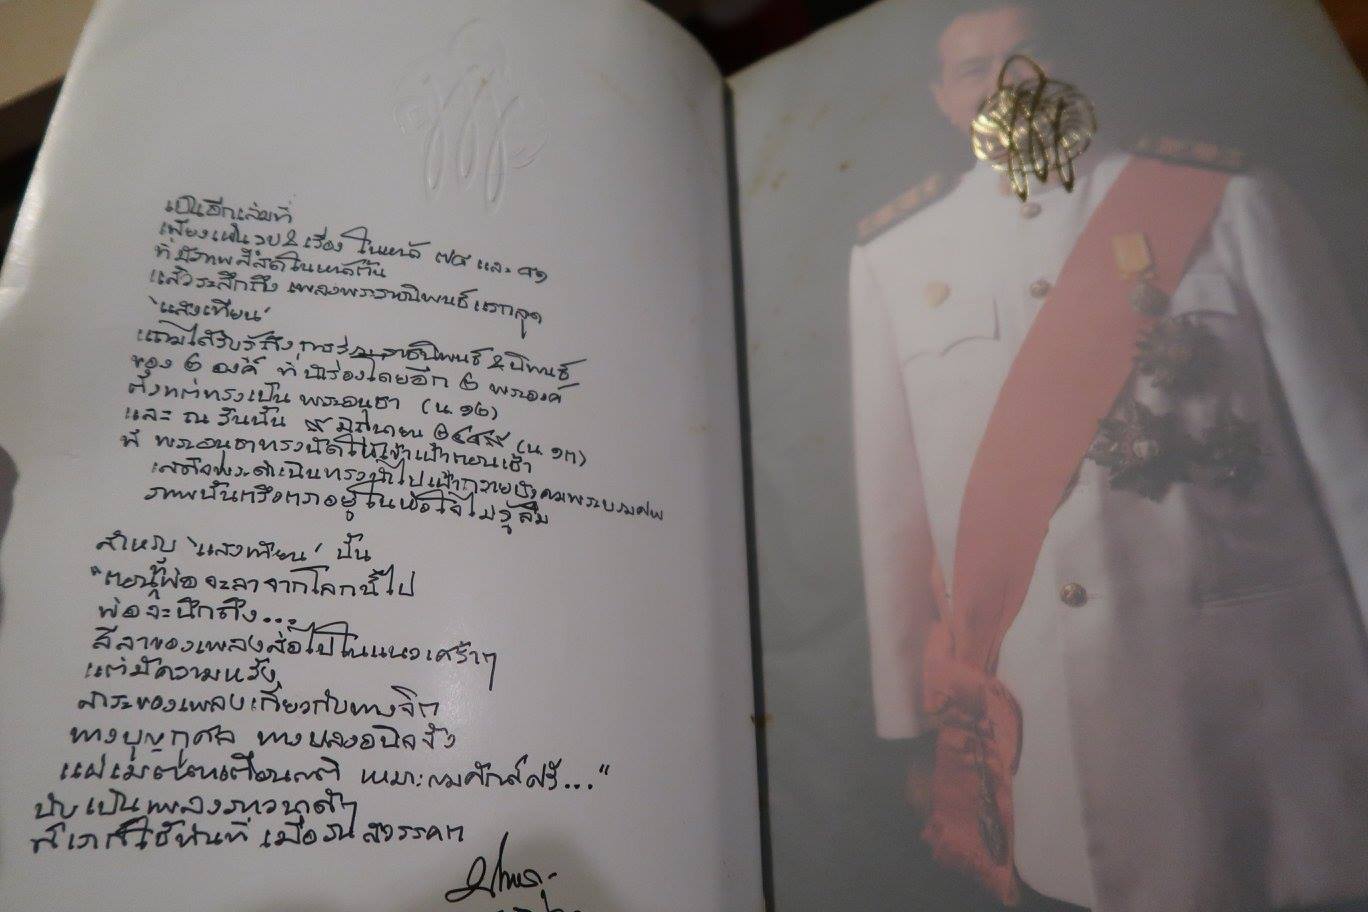 เป็นอีกเล่มที่
เพียงเห็นรูป & เรื่อง ในหน้า ๗๘ และ ๙๑
ที่มีภาพสีสดในหน้าต้น
แล้วระลึกถึง เพลงพระราชนิพนธ์แรกสุด
'แสงเทียน'
แถมได้รับรู้ถึง การร่วมราชนิพนธ์ & นิพนธ์
ของ ๒ องค์ ที่ โดยอีก ๒ พระองค์
ตั้งแต่ทรงเป็น พระอนุชา (น. ๑๒)
และ ณ วันนั้น ๙ มิถุนายน ๒๔๘๙ (น. ๑๓)
ที่ พระอนุชาทรงนัดให้เข้าเฝ้าตอนเช้า
เสด็จพระดำเนินทรงนำไปเฝ้าถวายบังคมพระบรมศพ
ภาพนั้นตรึงตราอยู่ในหัวใจไม่รู้ลืม
สำหรับ 'แสงเทียน' นั้น
"ตอนที่พ่อจะลาจากโลกนี้ไป
พ่อจะนึกถึง...
ลีลาของเพลงสื่อไปในแนวเศร้าๆ
แต่มีความหวัง
สาระของเพลงเกี่ยวกับทางจิต
ทางบุญกุศล ทางปลงอนิจจัง
เตือนสติ เหมาะสมศักดิ์ศรี..."
นับเป็นเพลงภาวนาดีๆ